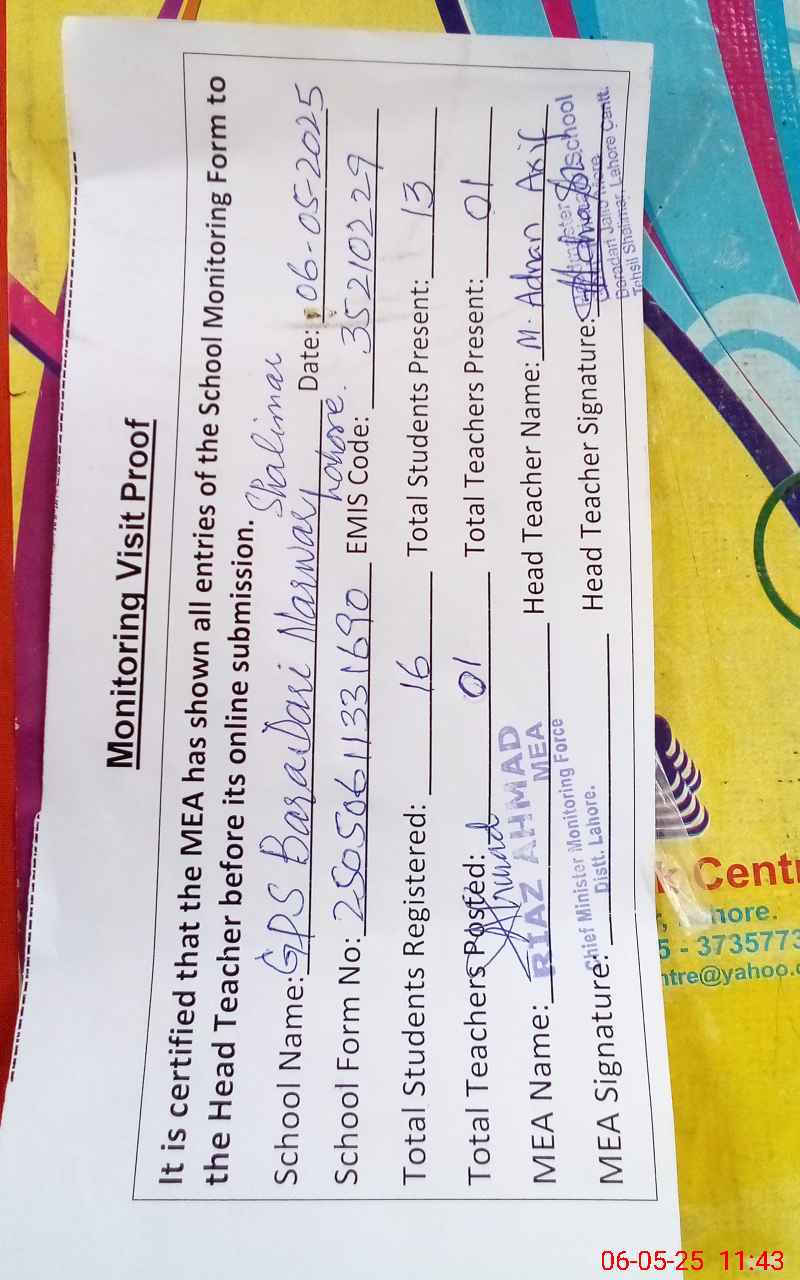 Monitoring Visit Proof
It is certified that the MEA has shown all entries of the School Monitoring Form to
the Head Teacher before its online submission.
School Name: GPS Baradari Narwar Shalimar Lahore. Date: 06-05-2025
School Form No: 25050611331690 EMIS Code: 35210229
Total Students Registered: 16 Total Students Present: 13
Total Teachers Posted: 01 Total Teachers Present: 01
MEA Name: RIAZ AHMAD Head Teacher Name: M. Adnan Asif
MEA
Chief Minister Monitoring Force
Distt. Lahore.
MEA Signature: Head Teacher Signature:
School
Tehsil Shalimar, Lahore Cantt.
k Centr
hore.
5 - 3735773
ntre@yahoo.c
06-05-25 11:43